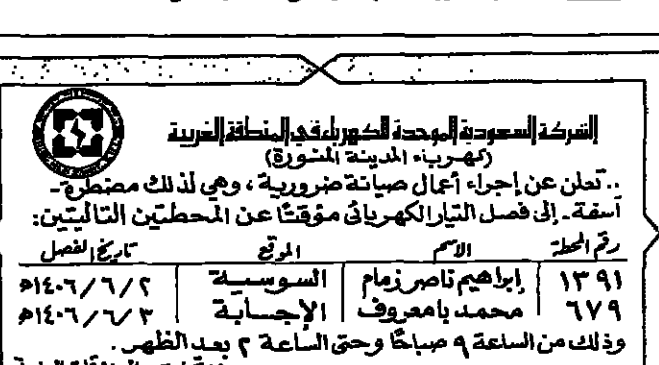 الشركة السعودية الموحدة للكهرباء في المنطقة الغربية
(كهرباء المدينة المنورة)
.. تعلن عن إجراء أعمال صيانة ضرورية ، وهي لذلك مضطرة -
آسفة - إلى فصل التيار الكهربائي مؤقتًا عن المحطتين التاليتين:
رقم المحطة الاسم الموقع تاريخ الفصل
١٣٩١ إبراهيم ناصر زمام السوسية ١٤٠٦/٦/٢هـ
٦٧٩ محمد بامعروف الإجسابة ١٤٠٦/٦/٣هـ
وذلك من الساعة ٩ صباحًا وحتى الساعة ٢ بعد الظهر .